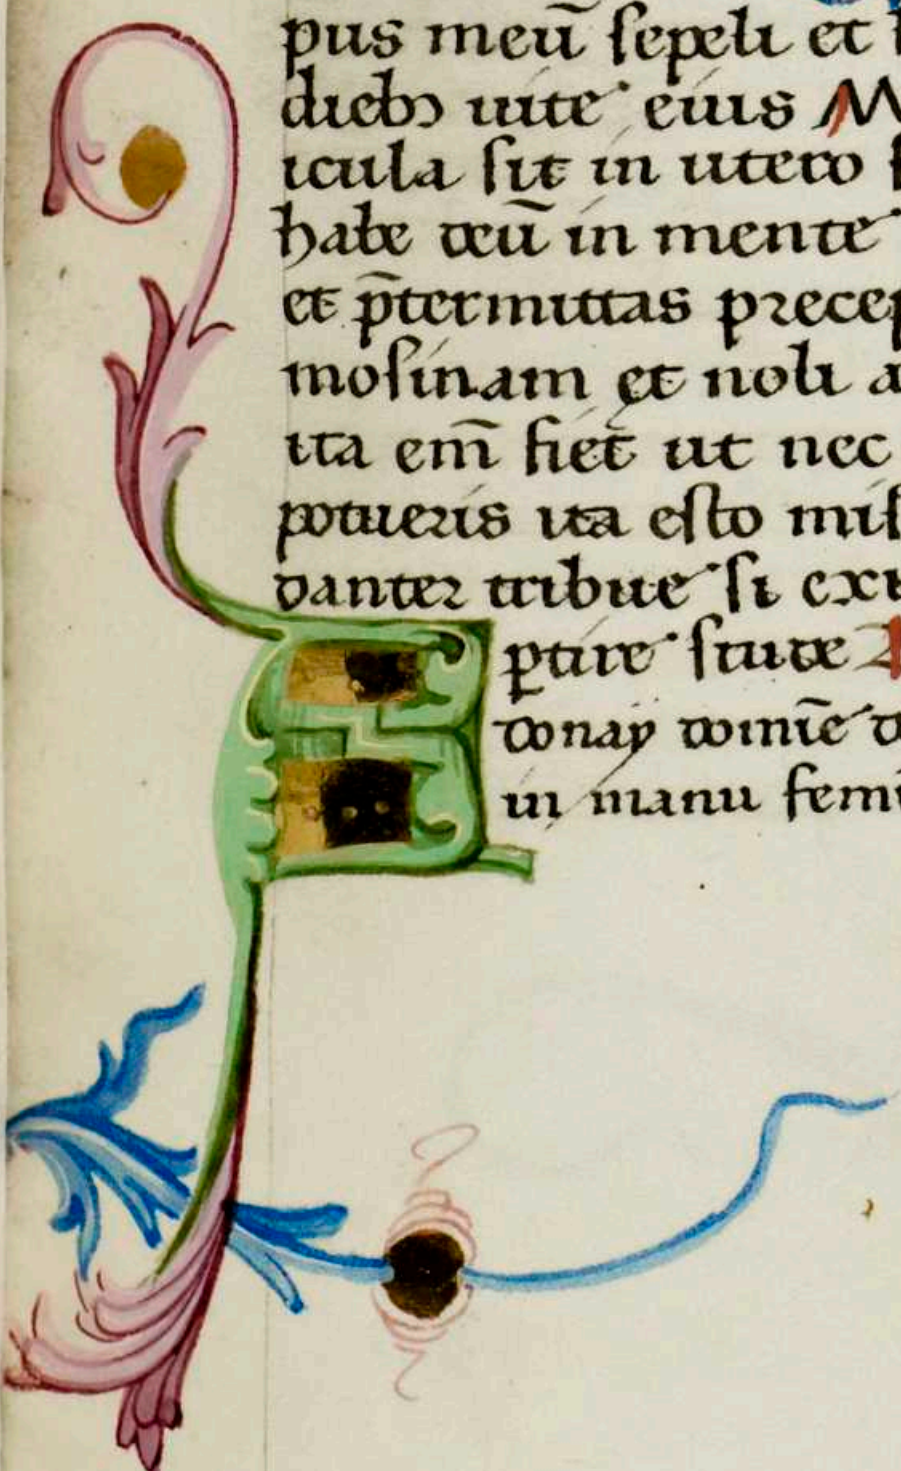 pus meū sepeli et h
dieb᷒ uite eius M
icula sit in utero s
habe deū in mente
et p̄termittas precep
mosinam et noli a
ita em̄ fiet ut nec
potueris ita esto mis
danter tribue si exi
ꝑtire stude
A donay domīe d
in manu femi